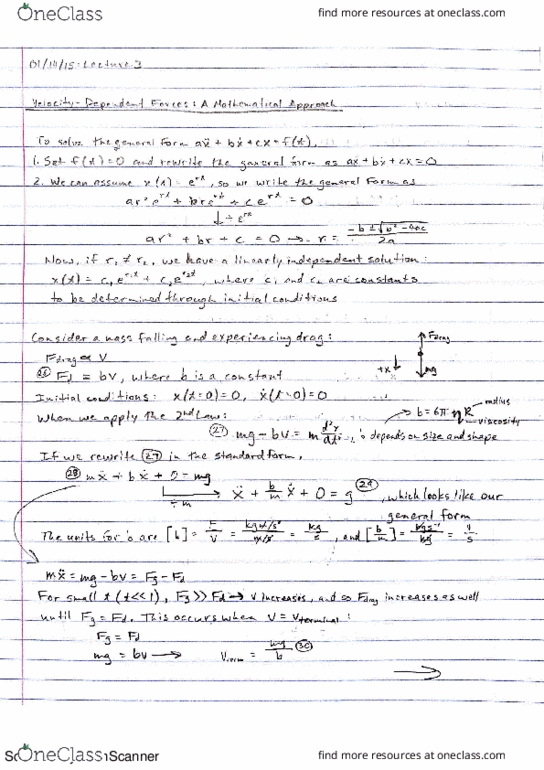 OneClass find more resources at oneclass.com
01/14/15: Lecture 3
Velocity-Dependent Forces: A Mathematical Approach
To solve the general form aẍ + bẋ + cx = f(t),
1. Set f(t)=0 and rewrite the general form as aẍ + bẋ + cx = 0
2. We can assume x(t) = e^{rt}, so we write the general form as
ar²e^{rt} + bre^{rt} + ce^{rt} = 0
↓ ÷ e^{rt}
ar² + br + c = 0 → r = (-b ± √(b² - 4ac))/2a
Now, if r₁ ≠ r₂, we have a linearly independent solution:
x(t) = c₁e^{r₁t} + c₂e^{r₂t}, where c₁ and c₂ are constants
to be determined through initial conditions
Consider a mass falling and experiencing drag:
F_drag ∝ V
F_drag
+x
mg
(26) F_d = bv, where b is a constant
Initial conditions: x(t=0)=0, ẋ(t=0)=0
When we apply the 2nd Law:
b = 6π η R
radius
viscosity
(27) mg - bv = m d²x/dt², b depends on size and shape
If we rewrite (27) in the standard form,
(28) mẍ + bẋ + 0 = mg
÷ m
ẍ + b/m ẋ + 0 = g (29), which looks like our
general form
The units for b are [b] = F/V = (kg m/s²)/(m/s) = kg/s, and [b/m] = (kg s⁻¹)/kg = 1/s
mẍ = mg - bv = Fg - Fd
For small t (t<<1), Fg >> Fd → v increases, and so F_drag increases as well
until Fg = Fd. This occurs when V = V_terminal:
Fg = Fd
mg = bv → V_term = mg/b (30)
OneClass Scanner find more resources at oneclass.com